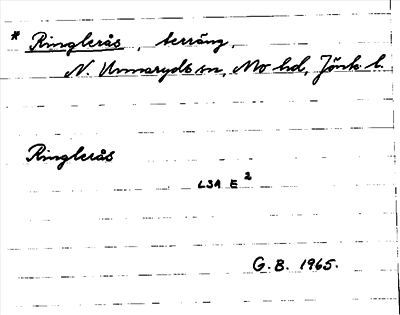 * Ringlerås, terräng,
N. Unnaryds sn, Mo hd, Jönk. l.
Ringlerås
LSA E²
G. B. 1965.